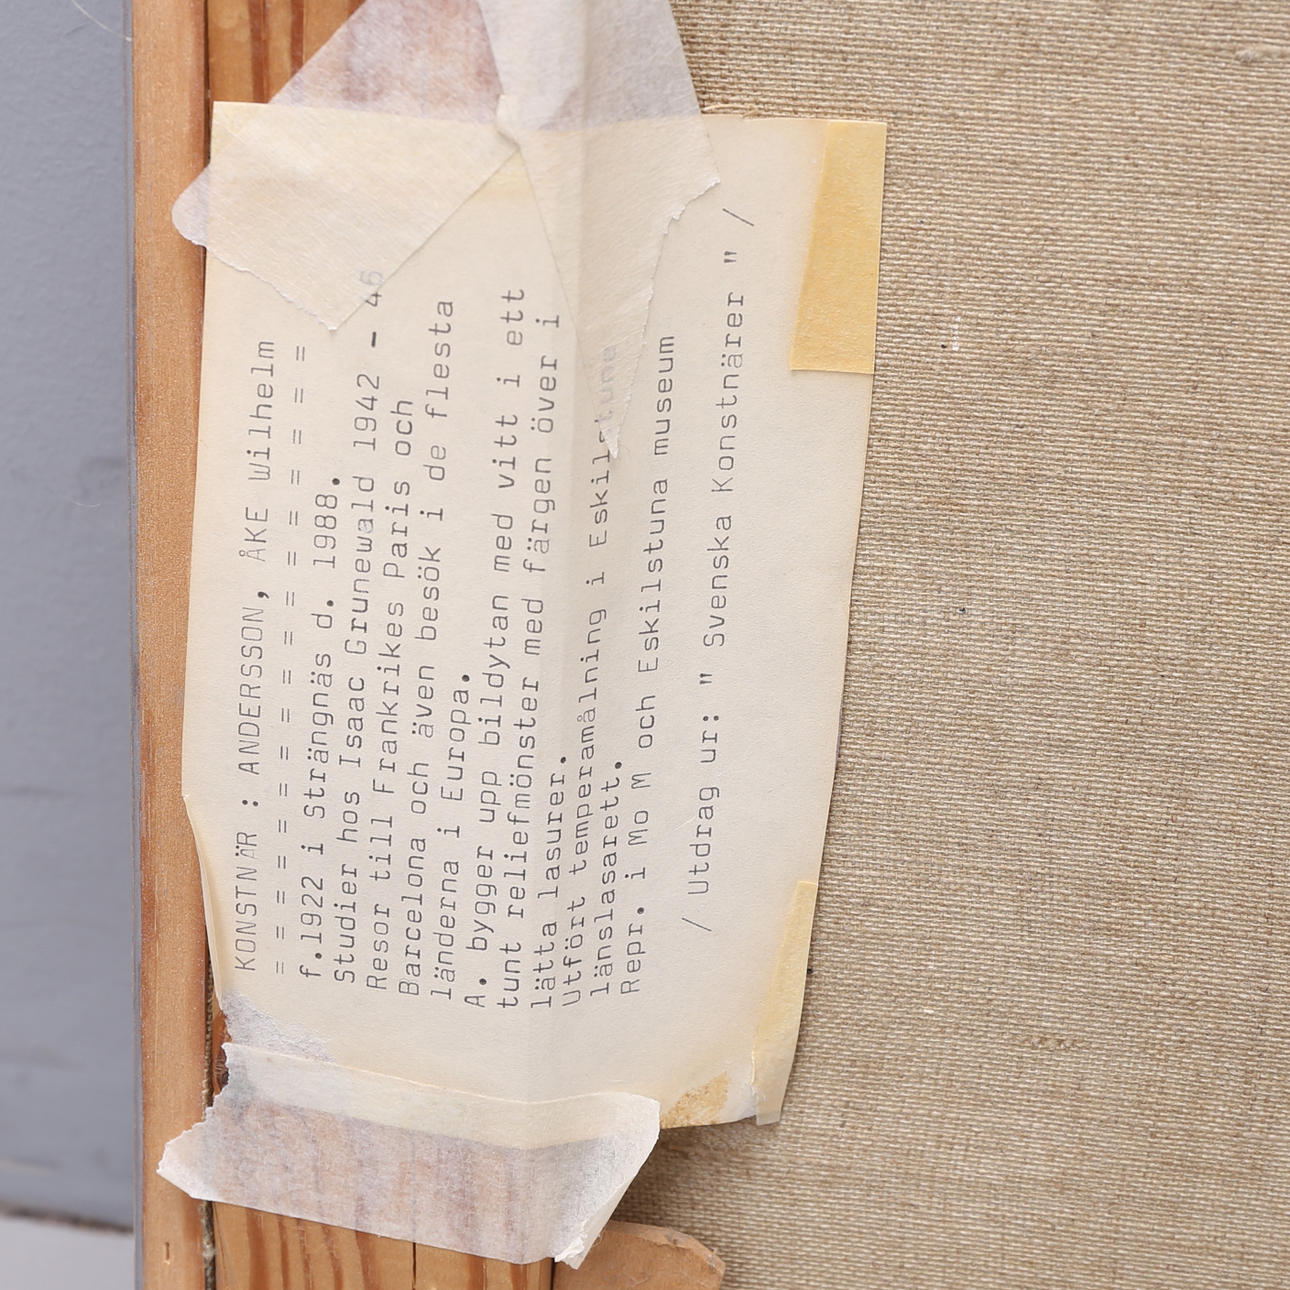 KONSTNÄR : ANDERSSON, ÅKE Wilhelm
= = = = = = = = = = = = = = = = = =
f.1922 i Strängnäs d. 1988.
Studier hos Isaac Grunewald 1942 - 46
Resor till Frankrikes Paris och
Barcelona och även besök i de flesta
länderna i Europa.
A. bygger upp bildytan med vitt i ett
tunt reliefmönster med färgen över i
lätta lasurer.
Utfört temperamålning i Eskilstuna
länslasarett.
Repr. i Mo M och Eskilstuna museum
/ Utdrag ur: " Svenska Konstnärer " /